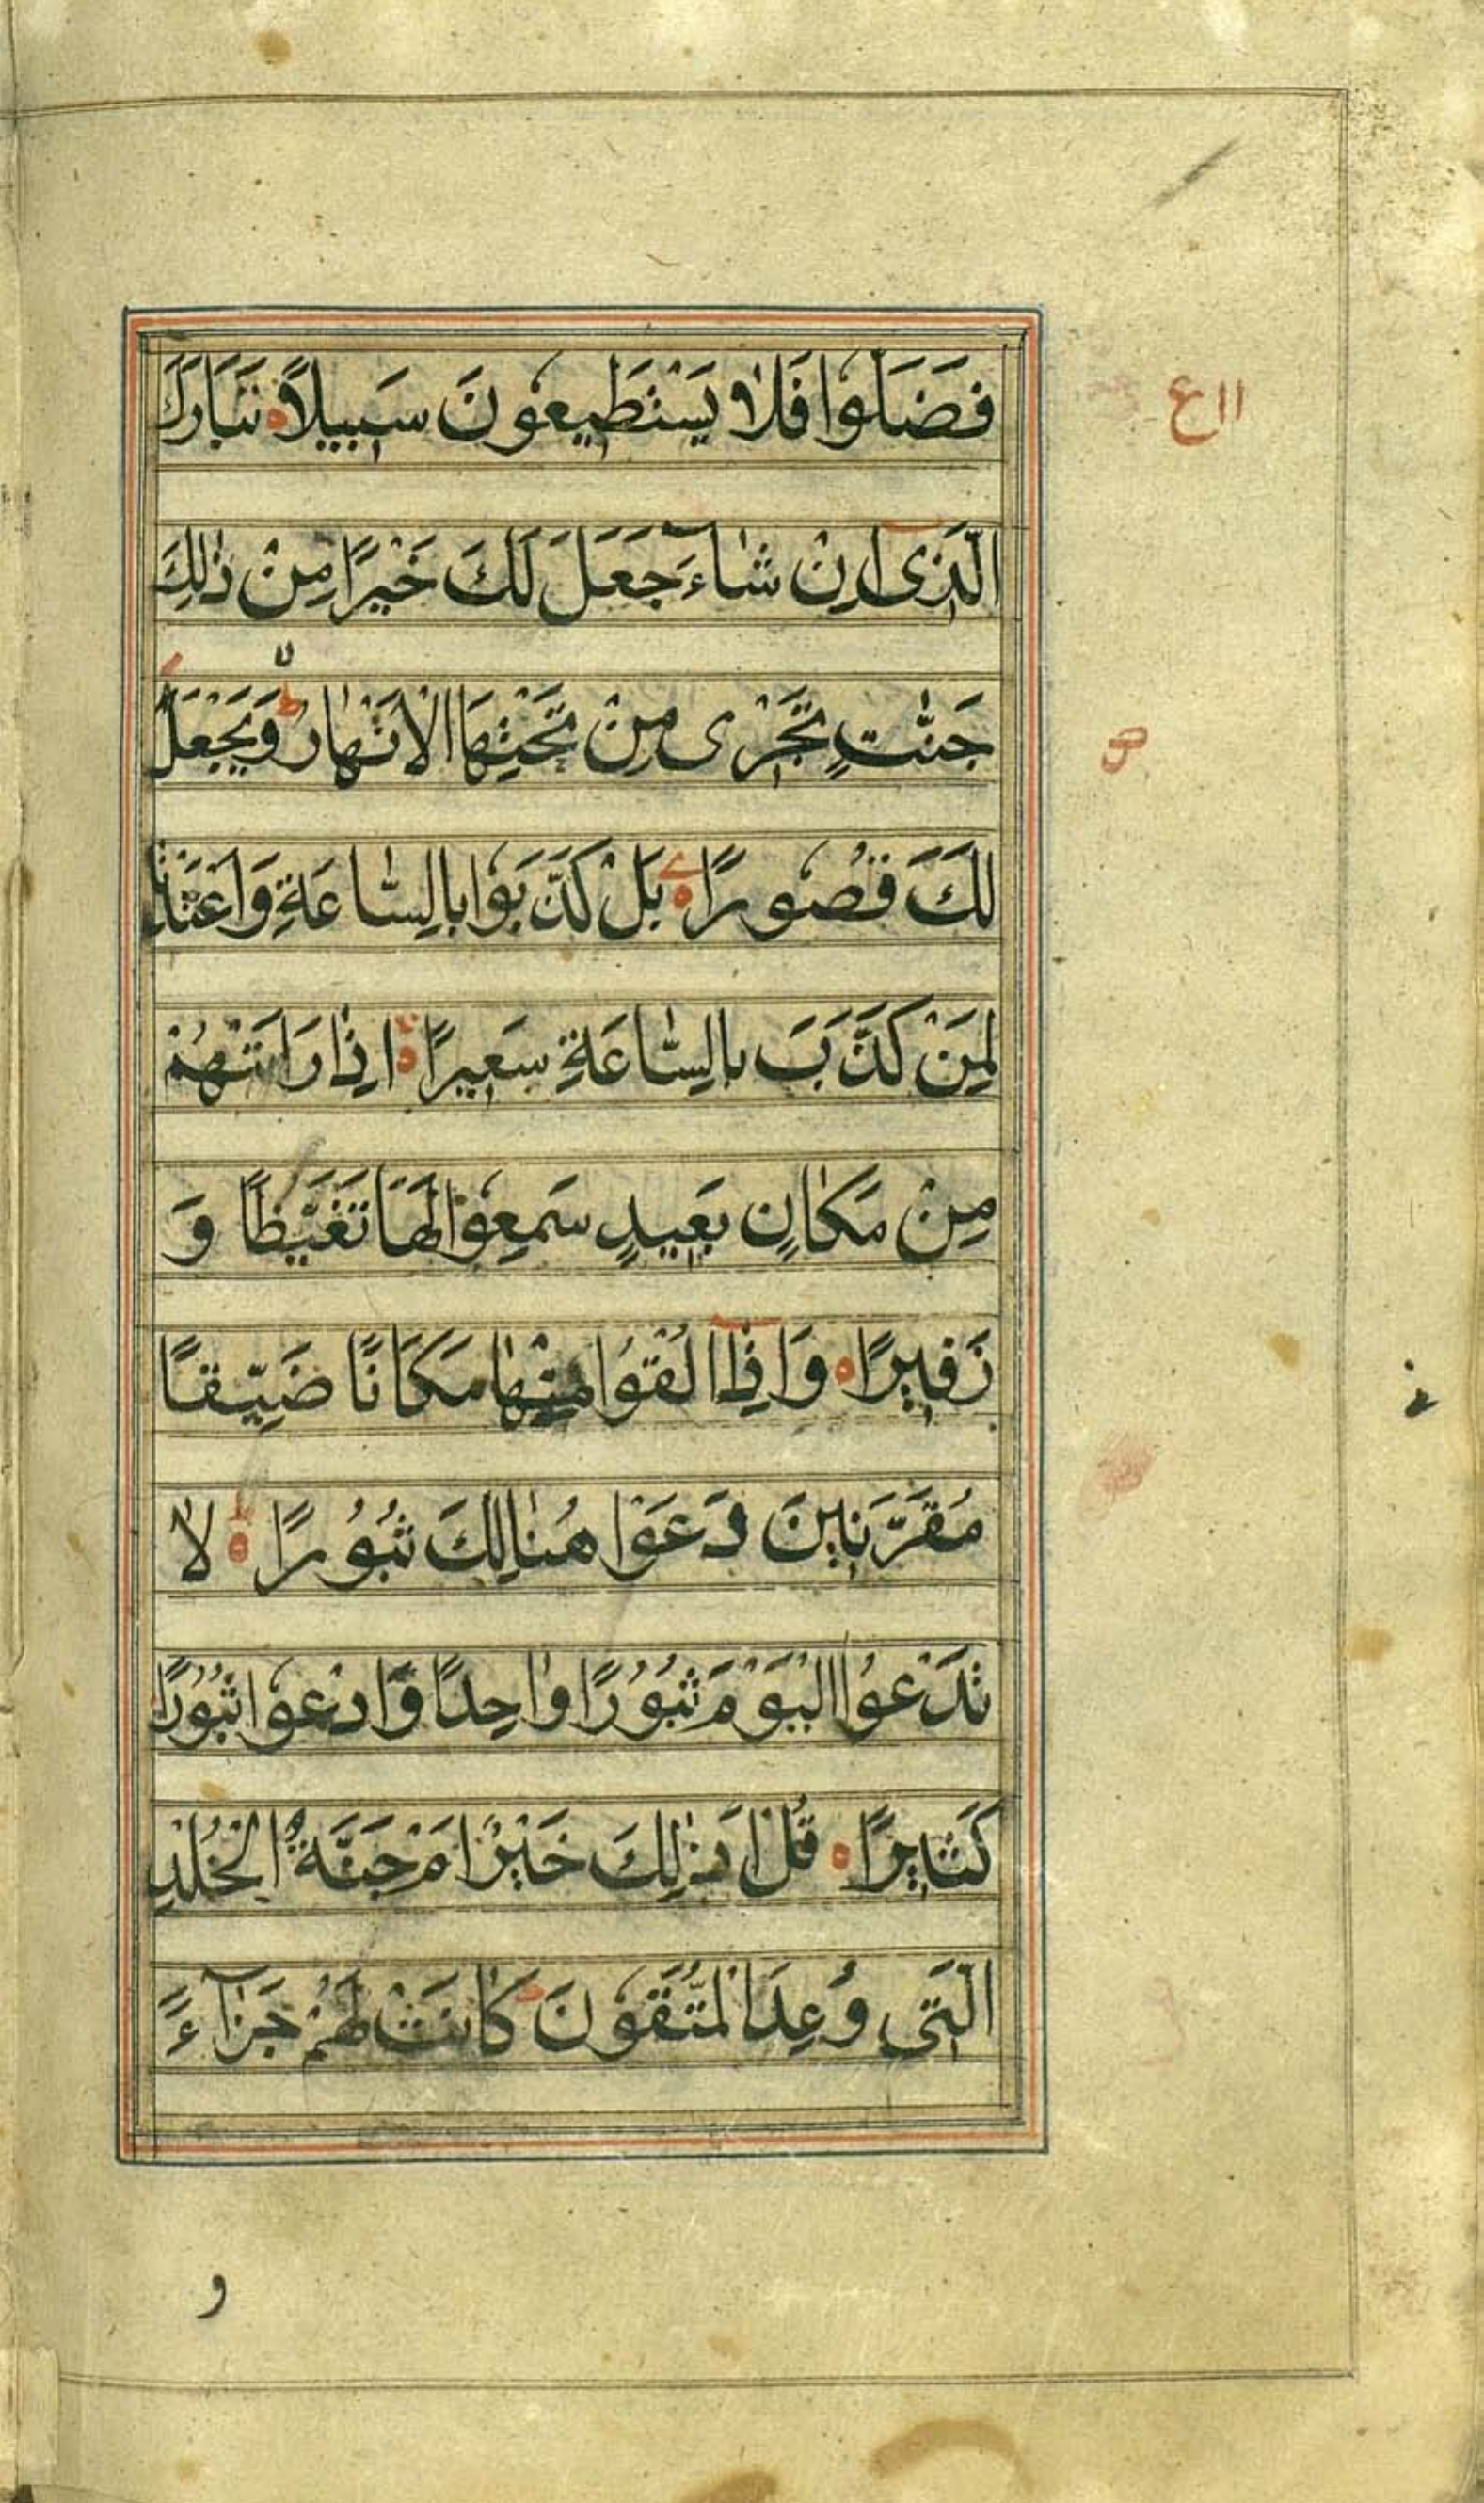 فَضَلُّوا فَلَا يَسْتَطِيعُونَ سَبِيلًا تَبَارَكَ
الَّذِىٓ اِنْ شَآءَ جَعَلَ لَكَ خَيْرًا مِنْ ذٰلِكَ
جَنّٰتٍ تَجْرِى مِنْ تَحْتِهَا الْاَنْهٰارُ وَيَجْعَلْ
لَكَ قُصُورًا بَلْ كَذَّبُوا بِالسّٰاعَةِ وَاَعْتَدْنٰا
لِمَنْ كَذَّبَ بِالسّٰاعَةِ سَعِيرًا اِذٰا رَاَتْهُمْ
مِنْ مَكٰانٍ بَعِيدٍ سَمِعُوا لَهَا تَغَيُّظًا وَ
زَفِيرًا وَاِذٰٓا اُلْقُوا مِنْهٰا مَكَانًا ضَيِّقًا
مُقَرَّنِينَ دَعَوْا هُنٰالِكَ ثُبُورًا لٰا
تَدْعُوا الْيَوْمَ ثُبُورًا وٰاحِدًا وَادْعُوا ثُبُورًا
كَثِيرًا قُلْ اَذٰلِكَ خَيْرٌ اَمْ جَنَّةُ الْخُلْدِ
الَّتِى وُعِدَ الْمُتَّقُونَ كٰانَتْ لَهُمْ جَزٰآءً
و
١١ع